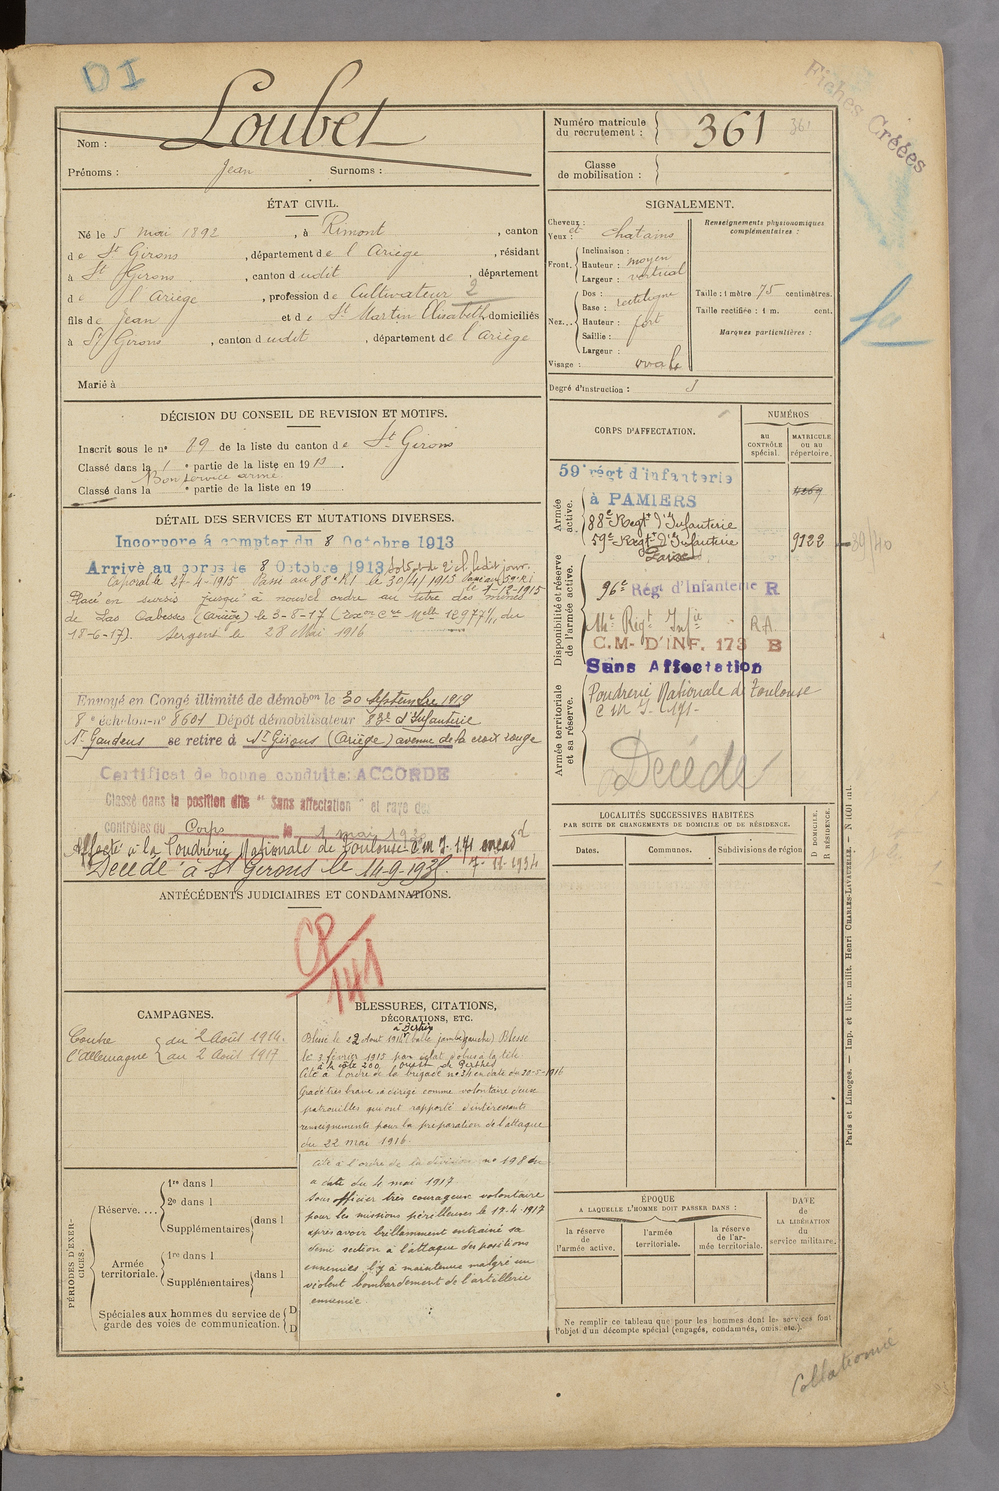 DI
Fiches Créées
Nom : Loubet
Prénoms : Jean Surnoms :
Numéro matricule
du recrutement : 361
361
Classe
de mobilisation :
ÉTAT CIVIL.
Né le 5 mai 1892, à Rimont, canton
de St Girons, département de l'Ariège, résidant
à St Girons, canton dudit, département
de l'Ariège, profession de Cultivateur 2
fils de Jean et de St Martin Elisabeth domiciliés
à St Girons, canton dudit, département de l'Ariège
Marié à
SIGNALEMENT.
Cheveux : et
Yeux : chatains
Front. Inclinaison :
Hauteur : moyen
Largeur : vertical
Nez... Dos : rectiligne
Base :
Hauteur : fort
Saillie :
Largeur :
Visage : ovale
Renseignements physionomiques
complémentaires :
Taille : 1 mètre 75 centimètres.
Taille rectifiée : 1 m. cent.
Marques particulières :
Degré d'instruction : 3
DÉCISION DU CONSEIL DE REVISION ET MOTIFS.
Inscrit sous le n° 89 de la liste du canton de St Girons
Classé dans la 1 e partie de la liste en 1913.
Bon service armé
Classé dans la e partie de la liste en 19
DÉTAIL DES SERVICES ET MUTATIONS DIVERSES.
Incorporé à compter du 8 Octobre 1913
Arrivé au corps le 8 Octobre 1913 Soldat de 2e cl. ledit jour.
Caporal le 27-4-1915 Passé au 88e RI le 30/4/1915 Passé au 59e RI
le 1-12-1915
Placé en sursis jusqu'à nouvel ordre au titre des mines
de Las Cabesses (Ariège) le 3-8-17 du
18-6-17). Sergent le 28 Mai 1916
Envoyé en Congé illimité de démobon le 30 Septembre 1919
8e échelon n° 8601 Dépôt démobilisateur 83e d'Infanterie
St Gaudens se retire à St Girons (Ariège) avenue de la croix rouge
Certificat de bonne conduite: ACCORDÉ
Classé dans la position dite "Sans affectation" et rayé des
contrôles du Corps le 1 mai 192
Affecté à la Poudrerie Nationale de Toulouse C.M.I. 171
7-11-1934
Décédé à St Girons le 14-9-193
ANTÉCÉDENTS JUDICIAIRES ET CONDAMNATIONS.
CP
141
CORPS D'AFFECTATION.
NUMÉROS
AU CONTRÔLE spécial.
MATRICULE ou au répertoire.
Armée active.
59e régt d'infanterie
à PAMIERS
88e Régt d'Infanterie
59e Régt d'Infanterie
9122
39/40
Disponibilité et réserve de l'armée active.
96e Régt d'Infanterie R
Régt Infie RA
C.M. D'INF. 173 B
Sans Affectation
Armée territoriale et sa réserve.
Poudrerie Nationale de Toulouse
C M I - 171 -
Décédé
LOCALITÉS SUCCESSIVES HABITÉES
PAR SUITE DE CHANGEMENTS DE DOMICILE OU DE RÉSIDENCE.
Dates. Communes. Subdivisions de région
D DOMICILE.
R RÉSIDENCE.
CAMPAGNES.
Contre l'Allemagne du 2 Août 1914
au 2 Août 1917
BLESSURES, CITATIONS,
DÉCORATIONS, ETC.
à Bertrix
Blessé le 22 Aout 1914 (balle jambe gauche) Blessé
le 3 février 1915 par éclat d'obus à la tête
à la côte 200, ouest de Perthes
Cité à l'ordre de la brigade n° 24 en date du 20-5-1916
Gradé très brave a dirigé comme volontaire deux
patrouilles qui ont rapporté d'intéressants
renseignements pour la préparation de l'attaque
du 22 mai 1916.
Cité à l'ordre de la division n° 198 en
date du 4 mai 1917
Sous officier très courageux volontaire
pour les missions périlleuses le 19-4-1917
après avoir brillamment entrainé sa
demi section à l'attaque des positions
ennemies, l'y a maintenue malgré un
violent bombardement de l'artillerie
ennemie
PÉRIODES D'EXERCICES.
Réserve.... 1re dans l
2e dans l
Supplémentaires dans l
Armée territoriale. 1re dans l
Supplémentaires dans l
Spéciales aux hommes du service de
garde des voies de communication. D
D
ÉPOQUE
A LAQUELLE L'HOMME DOIT PASSER DANS :
la réserve de l'armée active.
l'armée territoriale.
la réserve de l'armée territoriale.
DATE de LA LIBÉRATION du service militaire.
Ne remplir ce tableau que pour les hommes dont les services font
l'objet d'un décompte spécial (engagés, condamnés, omis, etc.).
Paris et Limoges. — Imp. et libr. milit. Henri CHARLES-LAVAUZELLE.
Collationné